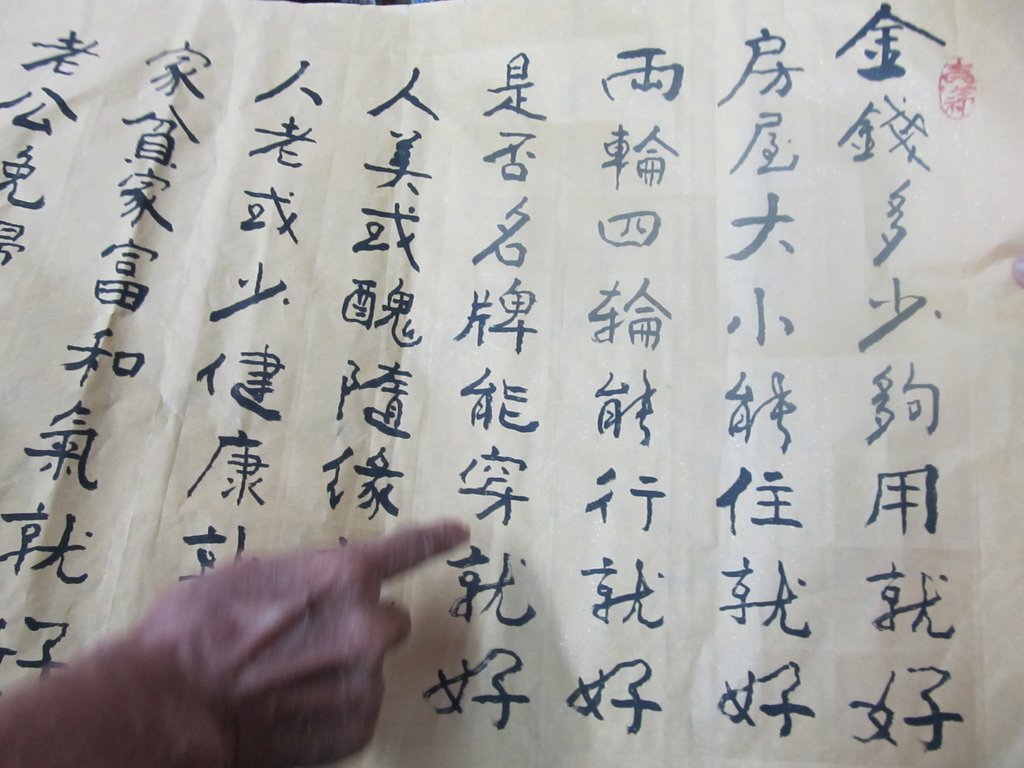 金錢多少夠用就好
房屋大小能住就好
両輪四輪能行就好
是否名牌能穿就好
人美或醜隨緣
人老或少健康就
家貧家富和氣就好
老公晚歸